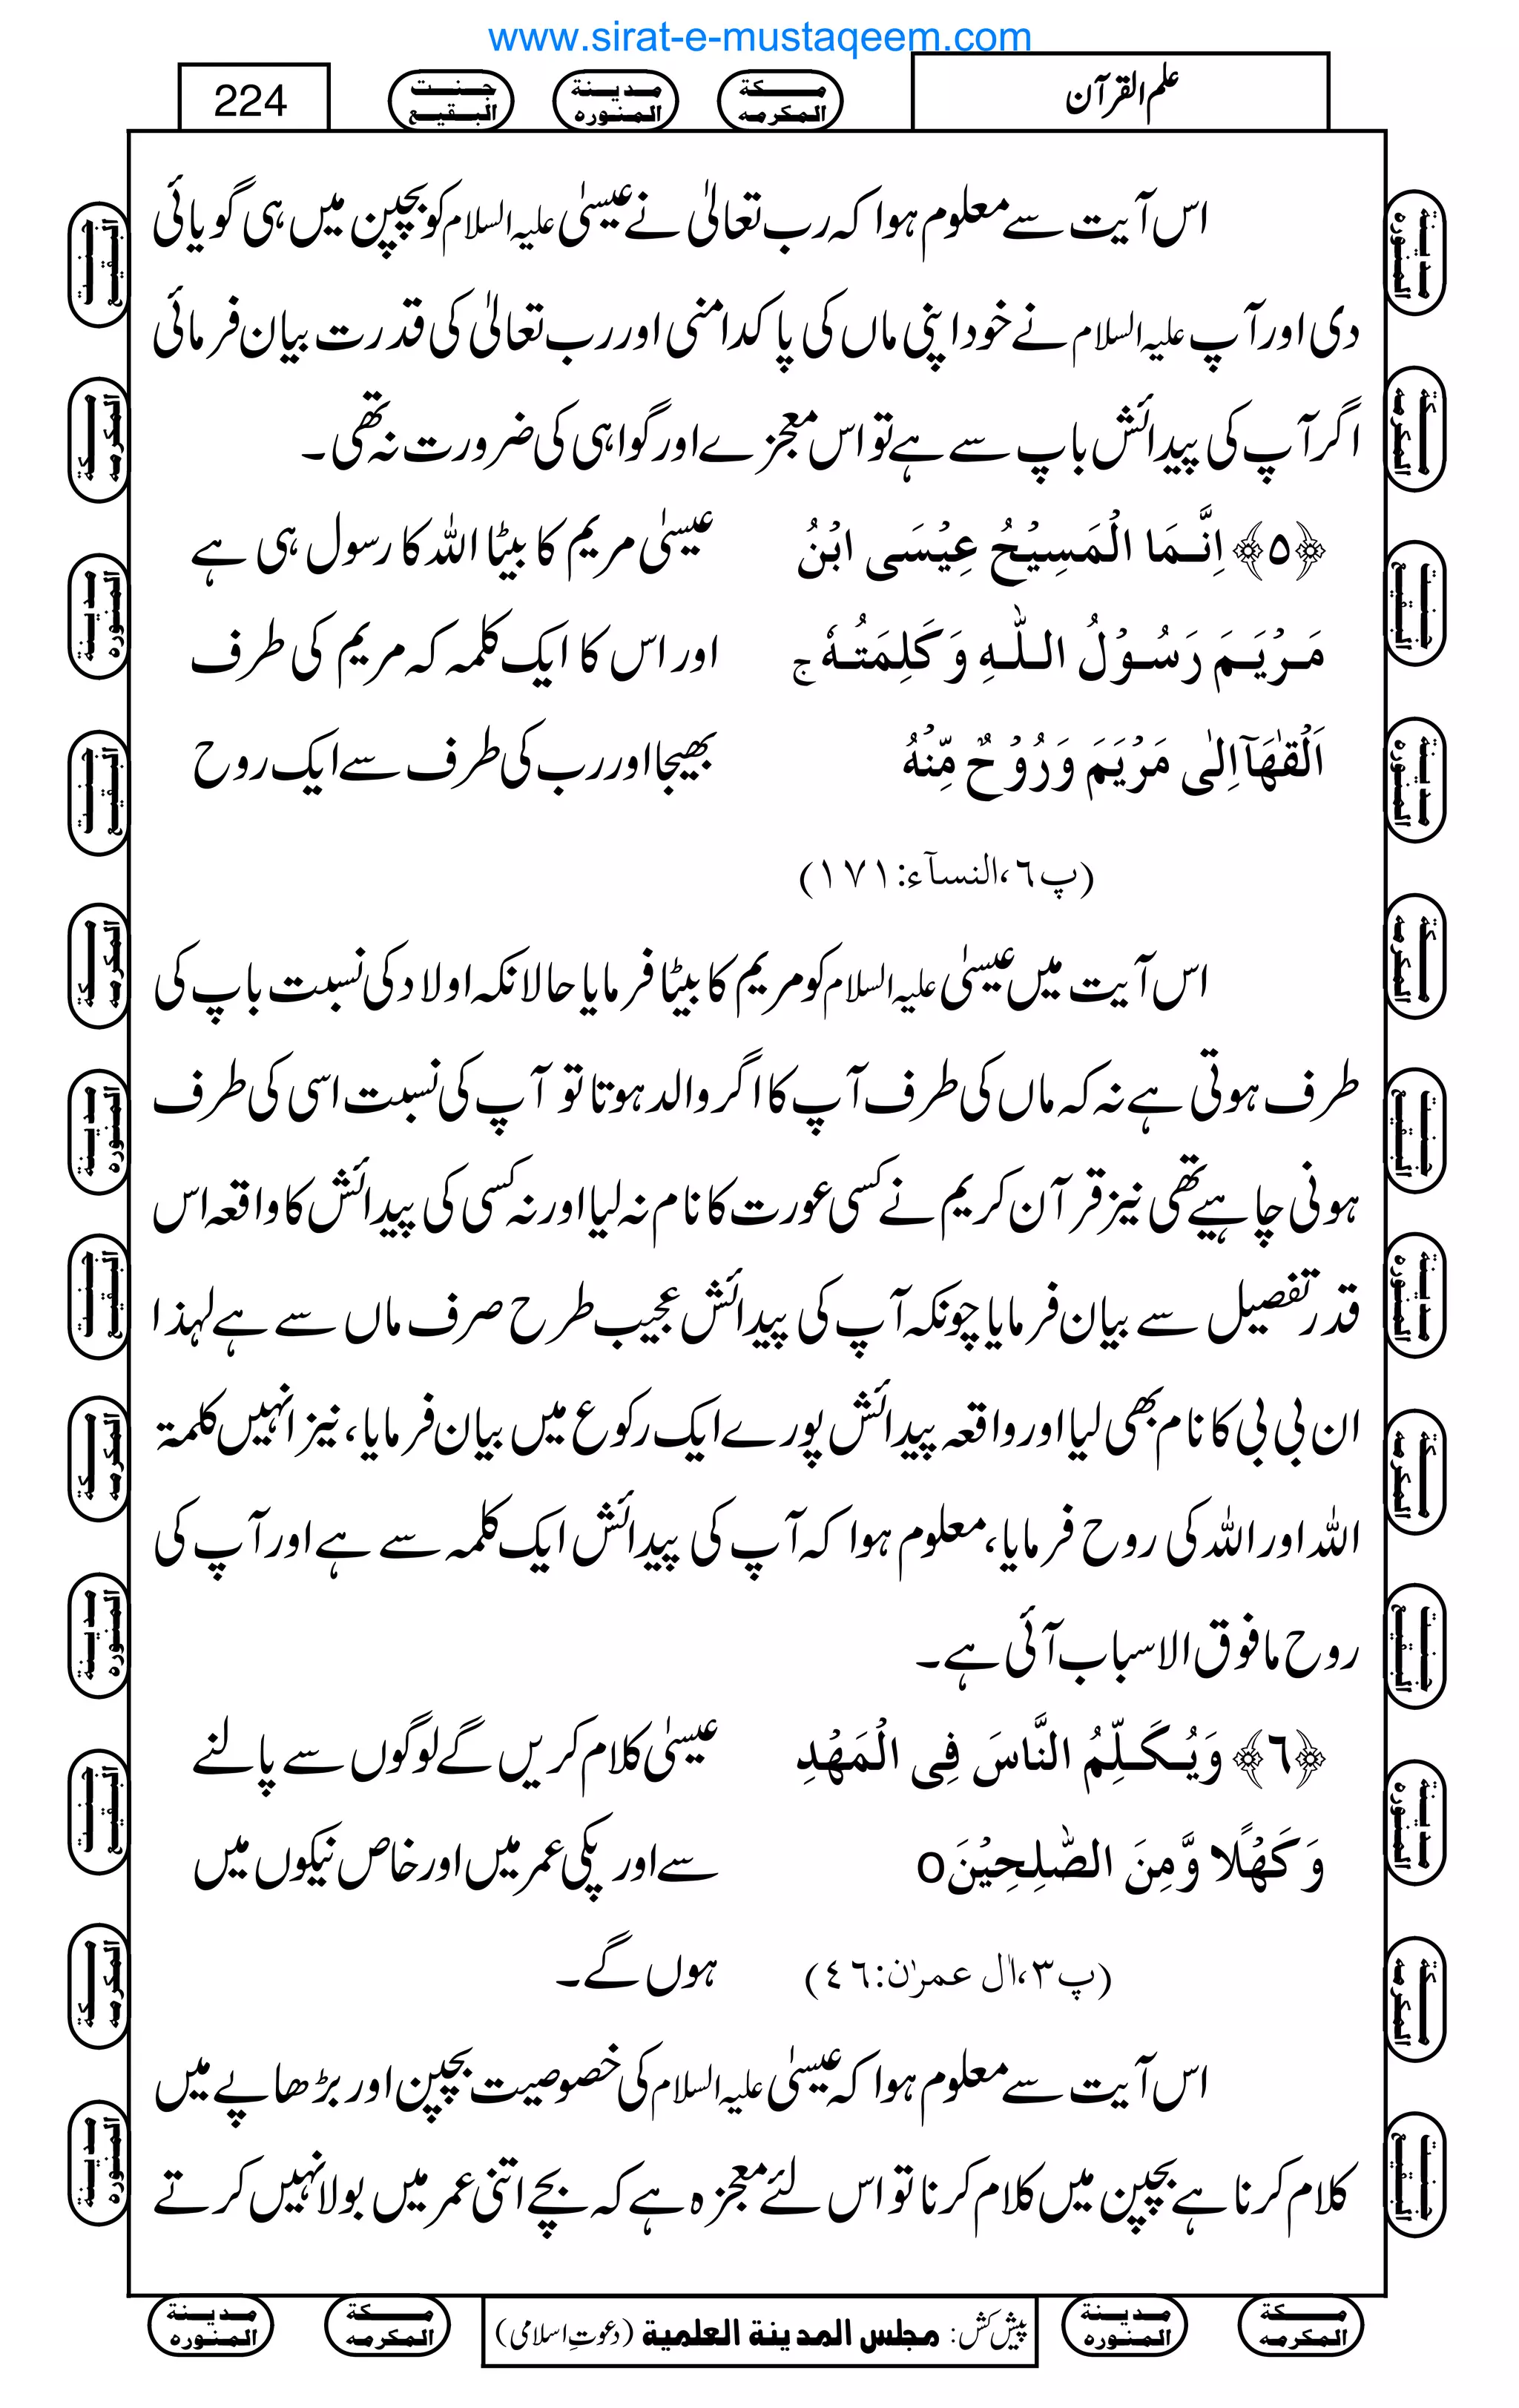 www.sirat-e-mustaqeem.com
علم القرآن
مكة المكرمه
مدينة المنوره
جنت البقيع
224
اس آیت سے معلوم ہوا کہ رب تعالیٰ نے عیسیٰ علیہ السلام کو بچپن میں ہی گویائی
دی اور آپ علیہ السلام نے خود اپنی ماں کی پاکدامنی اور رب تعالیٰ کی قدرت بیان فرمائی
اگر آپ کی پیدائش باپ سے ہے تو اس معجزے اور گواہی کی ضرورت نہ تھی۔
﴿٥﴾ اِنَّمَا الْمَسِيْحُ عِيْسَى ابْنُ
مَرْيَمَ رَسُوْلُ اللّٰهِ وَكَلِمَتُهٗ ج
اَلْقٰهَآ اِلٰى مَرْيَمَ وَرُوْحٌ مِّنْهُ
(پ٦،النسآء:١٧١)
عیسیٰ مریم کا بیٹا اللہ کا رسول ہی ہے
اور اس کا ایک کلمہ کہ مریم کی طرف
بھیجا اور رب کی طرف سے ایک روح
اس آیت میں عیسیٰ علیہ السلام کو مریم کا بیٹا فرمایا حالانکہ اولاد کی نسبت باپ کی
طرف ہوتی ہے نہ کہ ماں کی طرف آپ کا اگر والد ہوتا تو آپ کی نسبت اسی کی طرف
ہونی چاہیے تھی نیز قرآن کریم نے کسی عورت کا نام نہ لیا اور نہ کسی کی پیدائش کا واقعہ اس
قدر تفصیل سے بیان فرمایا چونکہ آپ کی پیدائش عجیب طرح صرف ماں سے ہے لہذا
ان بی بی کا نام بھی لیا اور واقعہ پیدائش پورے ایک رکوع میں بیان فرمایا، نیز انہیں کلمۃ
اللہ اور اللہ کی روح فرمایا، معلوم ہوا کہ آپ کی پیدائش ایک کلمہ سے ہے اور آپ کی
روح مافوق الاسباب آئی ہے۔
﴿٦﴾ وَيُكَلِّمُ النَّاسَ فِى الْمَهْدِ
وَكَهْلًا وَّمِنَ الصّٰلِحِيْنَ o
(پ٣،اٰل عمرٰن:٤٦)
عیسیٰ کلام کریں گے لوگوں سے پالنے
سے اور پکی عمر میں اور خاص نیکوں میں
ہوں گے۔
اس آیت سے معلوم ہوا کہ عیسیٰ علیہ السلام کی خصوصیت بچپن اور بڑھاپے میں
کلام کرنا ہے بچپن میں کلام کرنا تو اس لئے معجزہ ہے کہ بچے اتنی عمر میں بولا نہیں کرتے
مكة المكرمه
مدينة المنوره
پیش کش: مجلس المدينة العلمية (دعوتِ اسلامی)
مكة المكرمه
مدينة المنوره